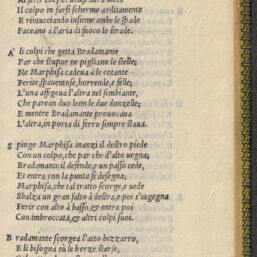 Il colpo in ſerſi ſchermo arditamente
E rintuccando inſieme ambe le ſpade
Faceano à l'aria di fuoco le ſtrade.
A li colpi che getta Bradamante
Par che ſtupor ne pigliano le ſtelle;
Ne Marphiſa cadeua à le cotante
Ferite, ſpauentoſe, horrende, e felle;
L'una aſſigeua l'altra nel ſembiante,
Che parean duo leon le due donzelle;
E mentre Bradamante prouocaua
L'altra, in porta di ferro ſempre ſtaua.
S pinge Marphiſa inanzi il deſtro piede
Con un colpo, che par che d'alto uegna;
Bradamante il defende, e un paſſo cede,
Et entra con la punta ſi deſegna;
Marphiſa, che tal tratto ſcorge, e uede
Sbalza un gran ſalto à deſtra, e poi s'uegna
Ferir con alto & baſſo, & entra poi
Con imbroccata, & altri colpi ſuoi.
B radamante ſcorgea l'atto bizzarro,
E li biſogna